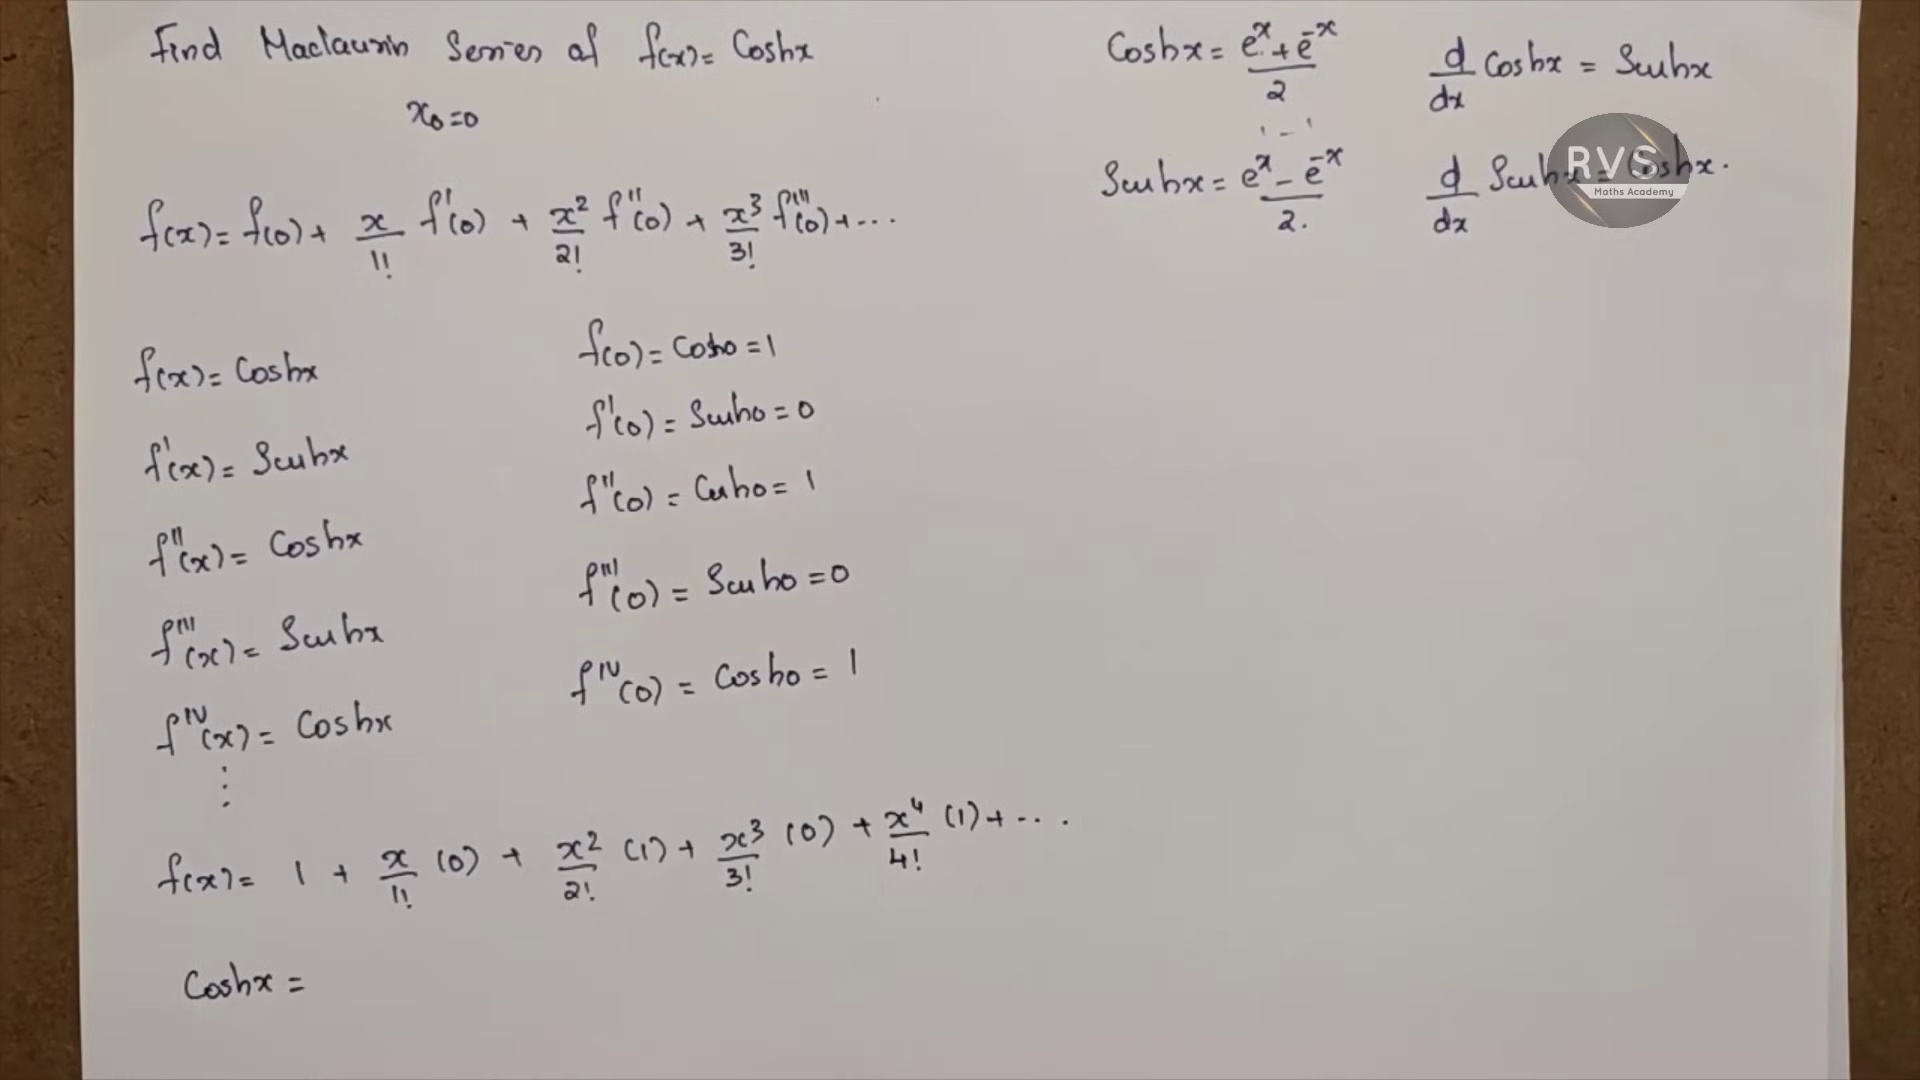 Find Maclaurin Series of f(x) = Coshx
x₀=0
f(x) = f(0) + x/1! f'(0) + x²/2! f''(0) + x³/3! f'''(0) + ...
f(x) = Coshx
f'(x) = Sinhx
f''(x) = Coshx
f'''(x) = Sinhx
f^IV(x) = Coshx
⋮
f(0) = Cosh0 = 1
f'(0) = Sinh0 = 0
f''(0) = Cosh0 = 1
f'''(0) = Sinh0 = 0
f^IV(0) = Cosh0 = 1
f(x) = 1 + x/1! (0) + x²/2! (1) + x³/3! (0) + x⁴/4! (1) + ...
Coshx =
Coshx = e^x + e^-x / 2
d/dx Coshx = Sinhx
Sinhx = e^x - e^-x / 2.
d/dx Sinhx = Coshx.
RVS
Maths Academy